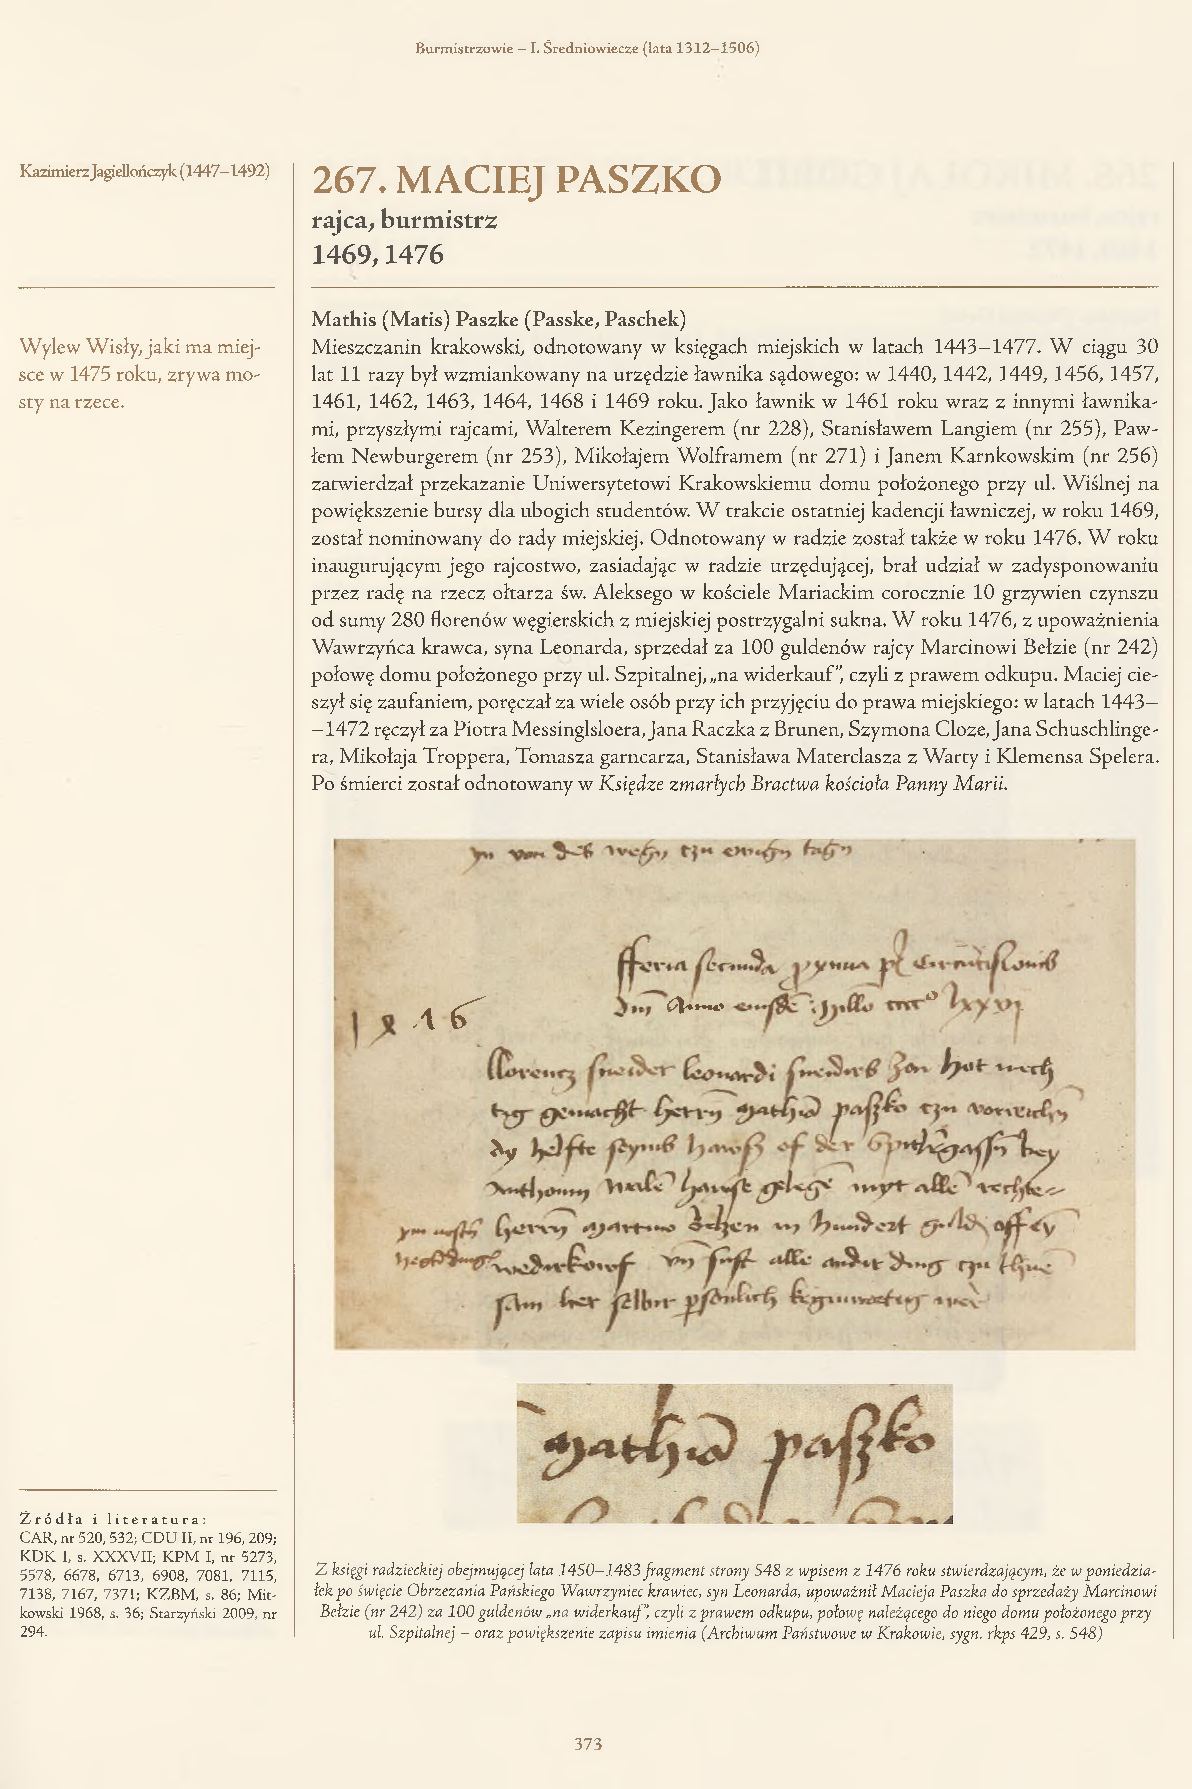 Burmistrzowie – I. Średniowiecze (lata 1312–1506)
Kazimierz Jagiellończyk (1447–1492)
267. MACIEJ PASZKO
rajca, burmistrz
1469, 1476
Wylew Wisły, jaki ma miej-
sce w 1475 roku, zrywa mo-
sty na rzece.
Mathis (Matis) Paszke (Passke, Paschek)
Mieszczanin krakowski, odnotowany w księgach miejskich w latach 1443–1477. W ciągu 30
lat 11 razy był wzmiankowany na urzędzie ławnika sądowego: w 1440, 1442, 1449, 1456, 1457,
1461, 1462, 1463, 1464, 1468 i 1469 roku. Jako ławnik w 1461 roku wraz z innymi ławnika-
mi, przyszłymi rajcami, Walterem Kezingerem (nr 228), Stanisławem Langiem (nr 255), Paw-
łem Newburgerem (nr 253), Mikołajem Wolframem (nr 271) i Janem Karnkowskim (nr 256)
zatwierdzał przekazanie Uniwersytetowi Krakowskiemu domu położonego przy ul. Wiślnej na
powiększenie bursy dla ubogich studentów. W trakcie ostatniej kadencji ławniczej, w roku 1469,
został nominowany do rady miejskiej. Odnotowany w radzie został także w roku 1476. W roku
inaugurującym jego rajcostwo, zasiadając w radzie urzędującej, brał udział w zadysponowaniu
przez radę na rzecz ołtarza św. Aleksego w kościele Mariackim corocznie 10 grzywien czynszu
od sumy 280 florenów węgierskich z miejskiej postrzygalni sukna. W roku 1476, z upoważnienia
Wawrzyńca krawca, syna Leonarda, sprzedał za 100 guldenów rajcy Marcinowi Bełzie (nr 242)
połowę domu położonego przy ul. Szpitalnej, „na widerkauf”, czyli z prawem odkupu. Maciej cie-
szył się zaufaniem, poręczał za wiele osób przy ich przyjęciu do prawa miejskiego: w latach 1443–
–1472 ręczył za Piotra Messinglsloera, Jana Raczka z Brunen, Szymona Cloze, Jana Schuschlinge-
ra, Mikołaja Troppera, Tomasza garncarza, Stanisława Materclasza z Warty i Klemensa Spelera.
Po śmierci został odnotowany w Księdze zmarłych Bractwa kościoła Panny Marii.
yn von des wegn czu ewign tagn
fferia secunda proxima post Circumcisionis
Anno eiusdem Millo cccc° lxxvj
1 4 7 6
llorencz sneider leonardi sneidirs zon hot mech
tig gemacht herrn mathia paszko czu vorreichn
dy helfte seyns hawsz of der Spitlrgassn bey
Anthonin walen hawse gelegen myt allen rechte
herrn martino belzen in hundert guld off ey
wedirkowf vn sust alle andir ding czu thuen
sam her selbir personlich kegenwortig wer
mathia paszko
Źródła i literatura:
CAR, nr 520, 532; CDU II, nr 196, 209;
KDK I, s. XXXVII; KPM I, nr 5273,
5578, 6678, 6713, 6908, 7081, 7115,
7138, 7167, 7371; KZBM, s. 86; Mit-
kowski 1968, s. 36; Starzyński 2009, nr
294.
Z księgi radzieckiej obejmującej lata 1450–1483 fragment strony 548 z wpisem z 1476 roku stwierdzającym, że w poniedzia-
łek po święcie Obrzezania Pańskiego Wawrzyniec krawiec, syn Leonarda, upoważnił Macieja Paszka do sprzedaży Marcinowi
Bełzie (nr 242) za 100 guldenów „na widerkauf”, czyli z prawem odkupu, połowę należącego do niego domu położonego przy
ul. Szpitalnej – oraz powiększenie zapisu imienia (Archiwum Państwowe w Krakowie, sygn. rkps 429, s. 548)
373